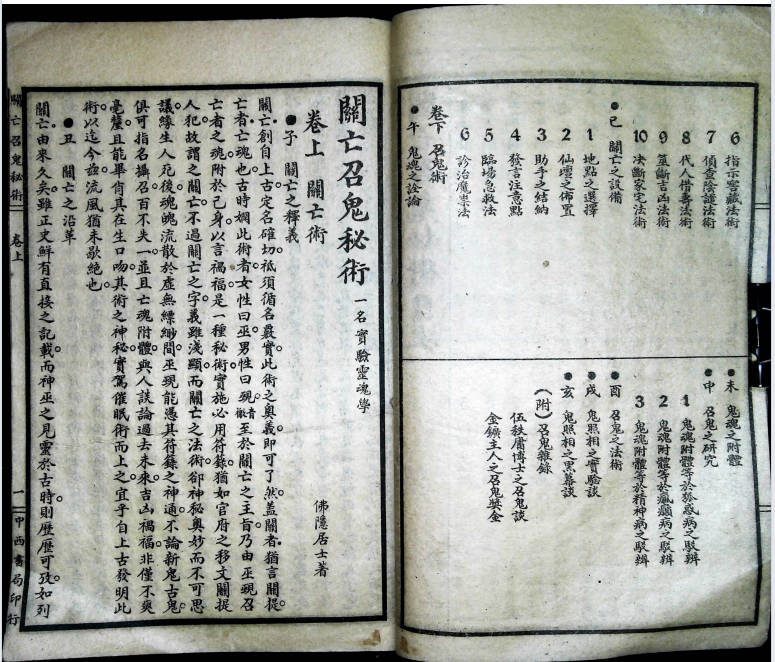 6 指示窖藏法術
7 偵查陰謀法術
8 代人借壽法術
9 筮斷吉凶法術
10 决斷家宅法術
●己 關亡之設備
1 地點之選擇
2 仙壇之佈置
3 助手之結納
4 發言注意點
5 臨場急救法
6 診治魔祟法
卷下 召鬼術
●午 鬼魂之詮論
●未 鬼魂之附體
●申 召鬼之研究
1 鬼魂附體等於狐惑病之駁辨
2 鬼魂附體等於瘋癲病之駁辨
3 鬼魂附體等於精神病之駁辨
●酉 召鬼之法術
●戌 鬼照相之實驗談
●亥 鬼照相之黑幕談
(附)召鬼雜錄
伍秩庸博士之召鬼談
金鑛主人之召鬼獎金
關亡召鬼秘術 一名實驗靈魂學
卷上 關亡術 佛隱居士著
●子 關亡之釋義
關亡創自上古。定名確切。祗須循名覈實。此術之奧義。即可了然。蓋關者。猶言關提。
亡者。亡魂也。古時嫻此術者。女性曰巫。男性曰覡。至於關亡之主旨。乃由巫覡召
亡者之魂。附於己身。以言禍福。是一種秘術。實施必用符籙。猶如官府之移文關提
人犯。故謂之關亡。不過關亡之字義雖淺顯。而關亡之法術。卻神秘奧妙。而不可思
議。緣生人死後。魂魄流散於虛無縹緲間。巫覡能憑其符籙之神通。不論新鬼古鬼。
俱可指名攝召。百不失一。並且亡魂附體。與人談論過去未來。吉凶禍福。非僅不爽
毫釐。且能畢肖其在生口吻。其術之神秘。實駕催眠術而上之。宜乎自上古發明此
術。以迄今茲。流風猶未歇絕也。
●丑 關亡之沿革
關亡由來久矣。雖正史鮮有直接之記載。而神巫之見靈於古時。則歷歷可攷。如列
關亡召鬼秘術 卷上 一 中西書局印行